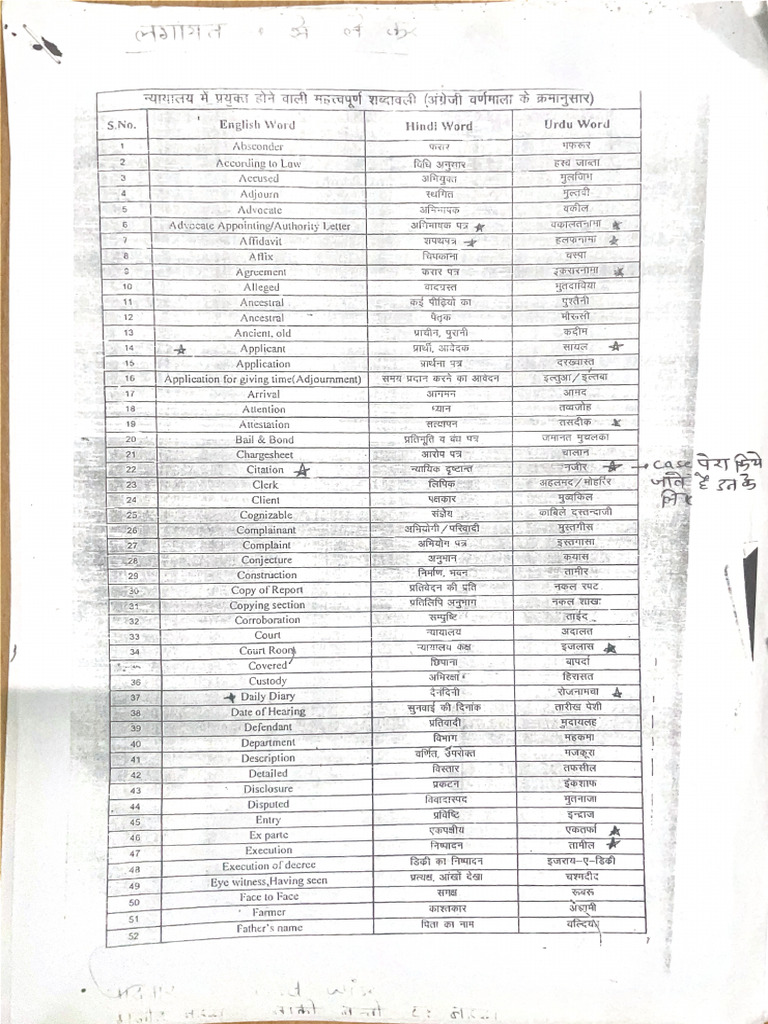 लगागत
न्यायालय में प्रयुक्त होने वाली महत्त्वपूर्ण शब्दावली (अंग्रेजी वर्णमाला के क्रमानुसार)
S.No. English Word Hindi Word Urdu Word
1 Absconder फरार मफरूर
2 According to Law विधि अनुसार हस्व जाब्ता
3 Accused अभियुक्त मुलजिम
4 Adjourn स्थगित मुल्तवी
5 Advocate अभिभाषक वकील
6 Advocate Appointing/Authority Letter अभिभाषक पत्र वकालतनामा
7 Affidavit शपथपत्र हलफनामा
8 Affix चिपकाना चस्पा
9 Agreement करार पत्र इकरारनामा
10 Alleged वादग्रस्त मुतदाविया
11 Ancestral कई पीढ़ियों का पुश्तैनी
12 Ancestral पैतृक मौरूसी
13 Ancient, old प्राचीन, पुरानी कदीम
14 Applicant प्रार्थी, आवेदक सायल
15 Application प्रार्थना पत्र दरख्वास्त
16 Application for giving time(Adjournment) समय प्रदान करने का आवेदन इल्तुआ/इल्तबा
17 Arrival आगमन आमद
18 Attention ध्यान तव्वजोह
19 Attestation सत्यापन तसदीक
20 Bail & Bond प्रतिभूति व बंध पत्र जमानत मुचलका
21 Chargesheet आरोप पत्र चालान
22 Citation न्यायिक दृष्टान्त नजीर → case पेश किये
23 Clerk लिपिक अहलमद/मोहर्रिर जाते है उनके
24 Client पक्षकार मुव्वकिल लिए
25 Cognizable संज्ञेय काबिले दस्तन्दाजी
26 Complainant अभियोगी/परिवादी मुस्तगीस
27 Complaint अभियोग पत्र इस्तगासा
28 Conjecture अनुमान कयास
29 Construction निर्माण, भवन तामीर
30 Copy of Report प्रतिवेदन की प्रति नकल रपट
31 Copying section प्रतिलिपि अनुभाग नकल शाख
32 Corroboration सम्पुष्टि ताईद
33 Court न्यायालय अदालत
34 Court Room न्यायालय कक्ष इजलास
Covered छिपाना बापर्दा
36 Custody अभिरक्षा हिरासत
37 Daily Diary दैनंदिनी रोजनामचा
38 Date of Hearing सुनवाई की दिनांक तारीख पेशी
39 Defendant प्रतिवादी मुदायलह
40 Department विभाग महकमा
41 Description वर्णित, उपरोक्त मजकूरा
42 Detailed विस्तार तफसील
43 Disclosure प्रकटन इंकशाफ
44 Disputed विवादास्पद मुतनाजा
45 Entry प्रविष्टि इन्द्राज
46 Ex parte एकपक्षीय एकतर्फा
47 Execution निष्पादन तामील
48 Execution of decree डिकी का निष्पादन इजराय-ए-डिकी
49 Eye witness,Having seen प्रत्यक्ष, आंखों देखा चश्मदीद
50 Face to Face समक्ष रूबरू
51 Farmer काश्तकार
52 Father's name पिता का नाम वल्दियत